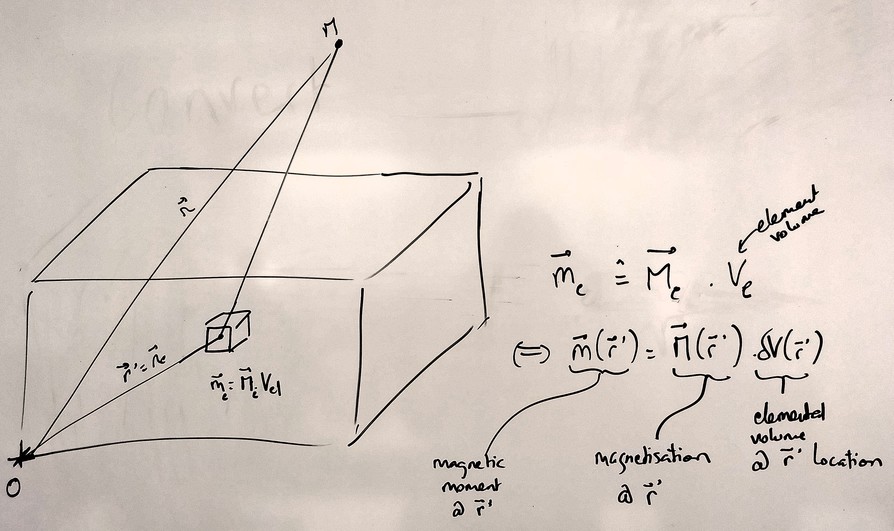 M
r⃗
r⃗' = r⃗e
m⃗e = M⃗e Vel
O
m⃗e ≙ M⃗e . Ve
element
volume
⟺ m⃗(r⃗') = M⃗(r⃗') . δV(r⃗')
magnetic
moment
@ r⃗'
magnetisation
@ r⃗'
elemental
volume
@ r⃗' location